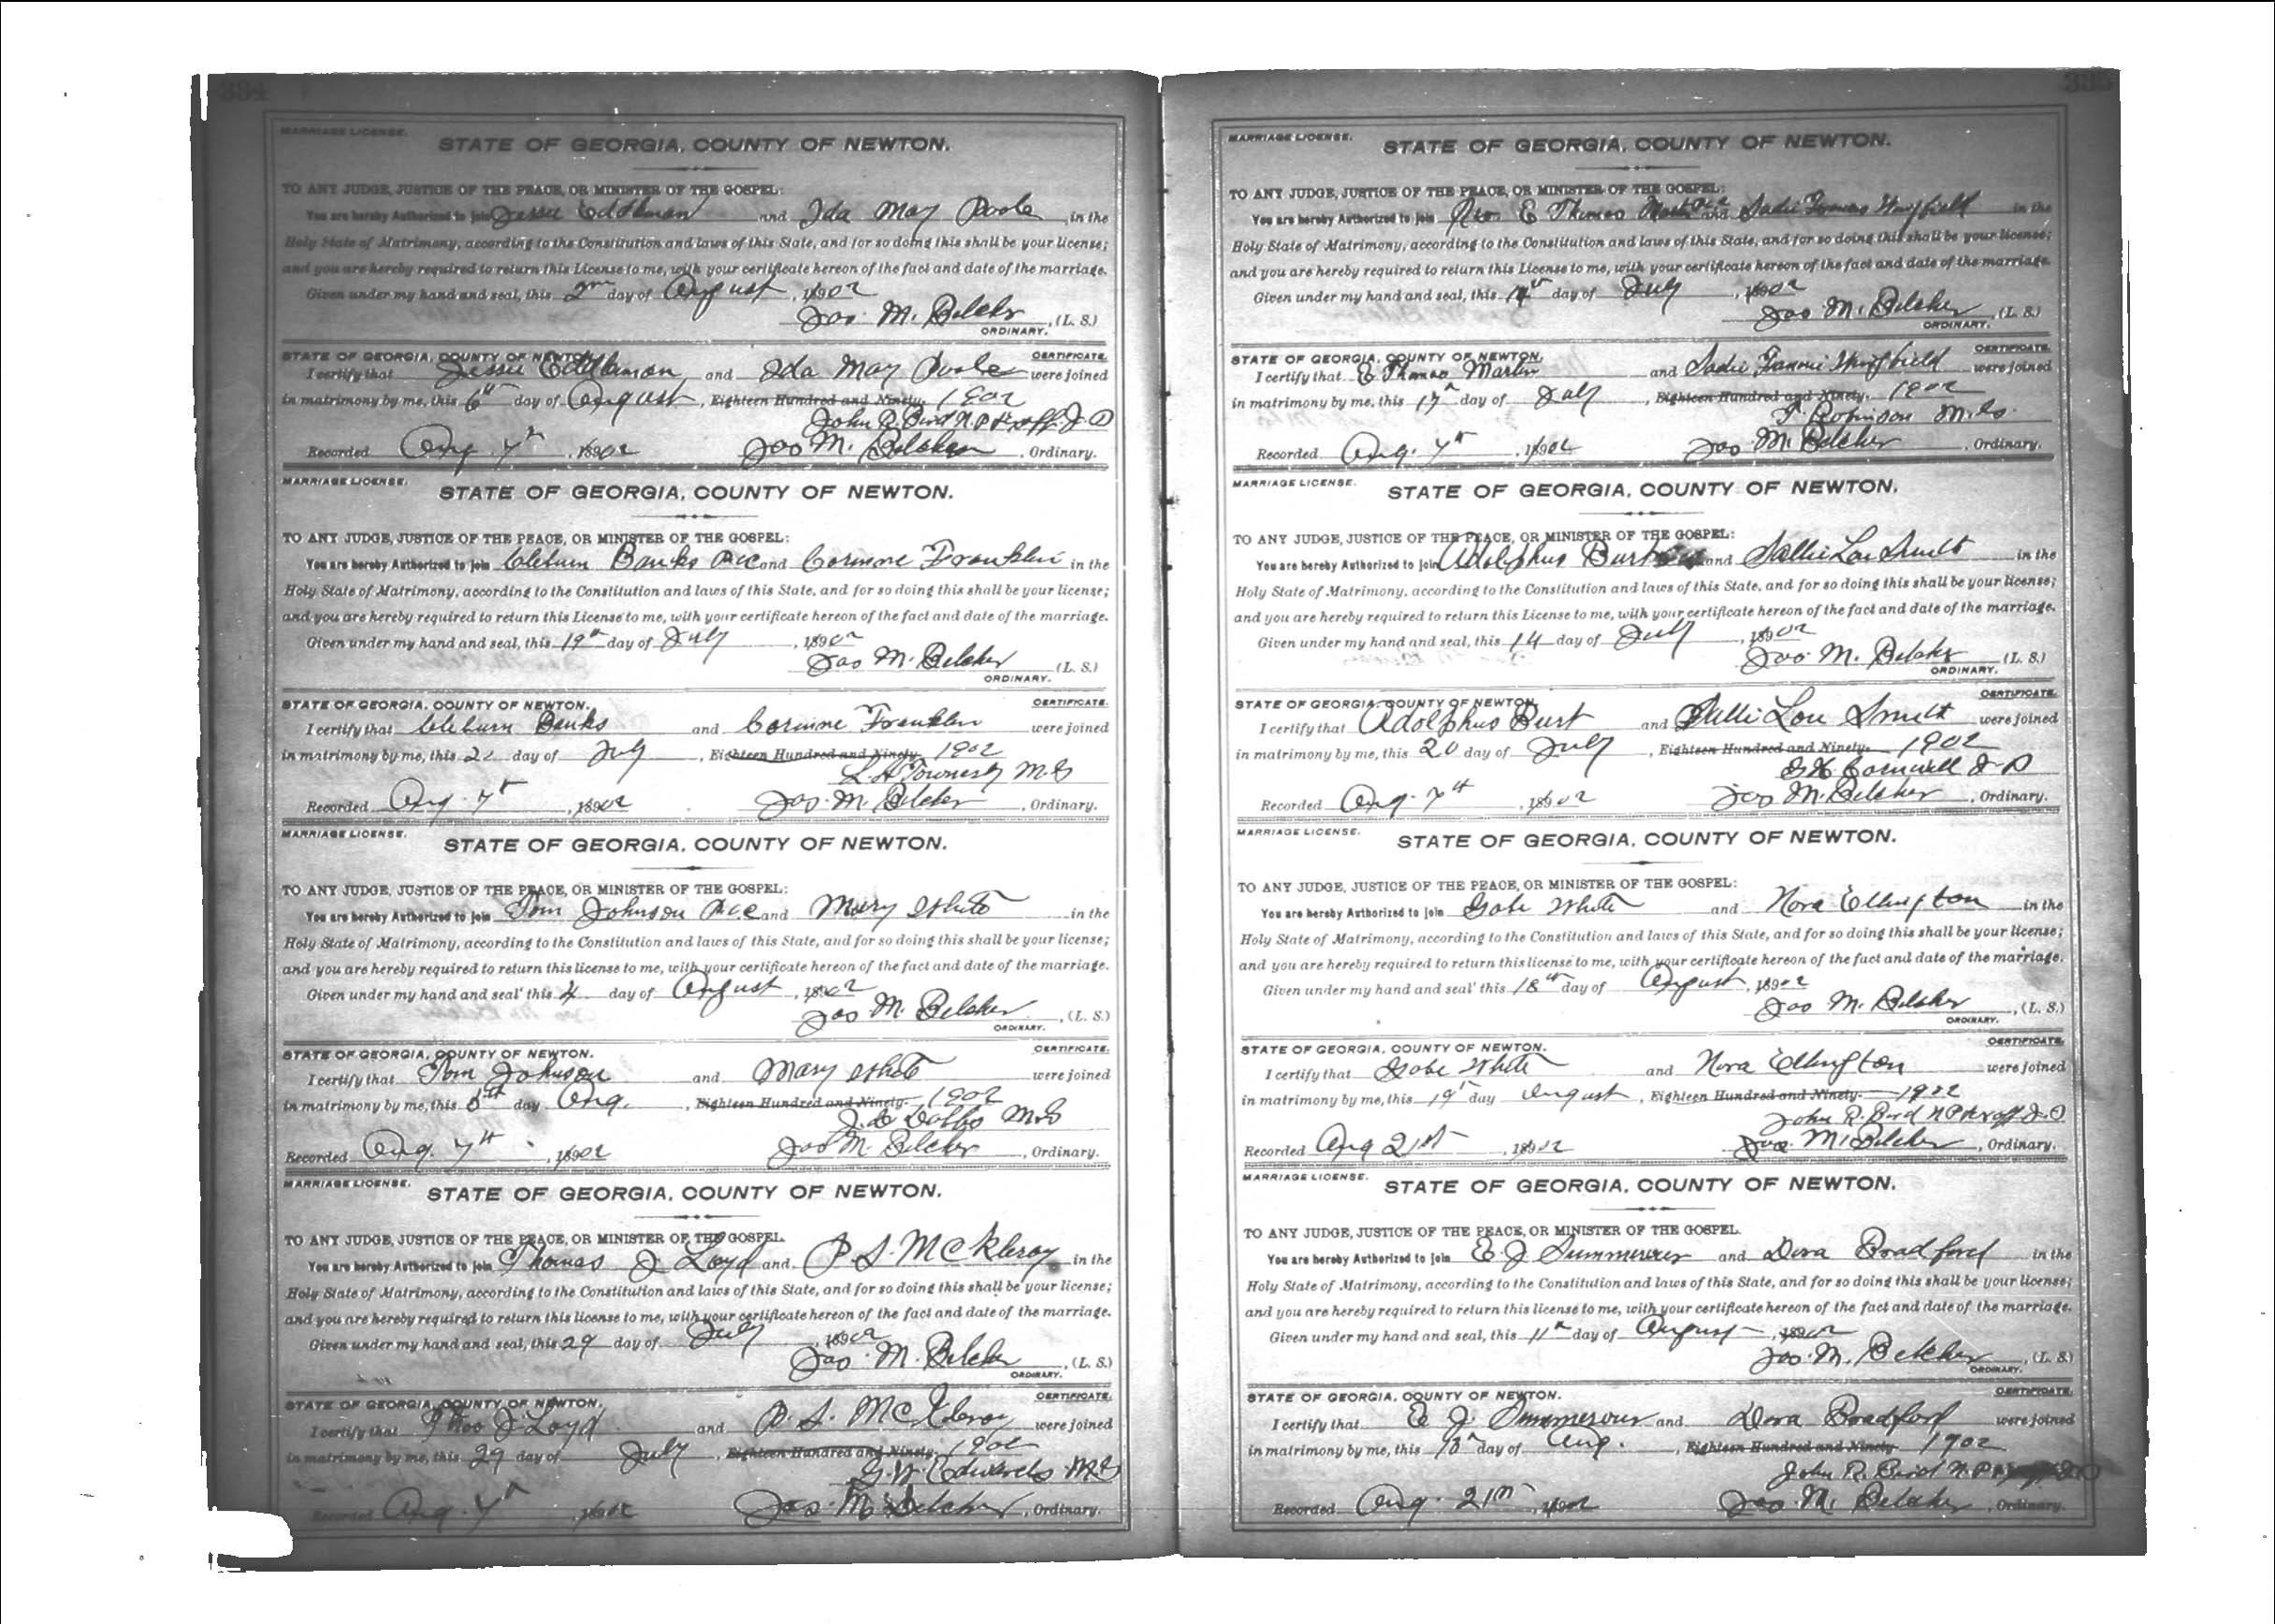 334
MARRIAGE LICENSE.
STATE OF GEORGIA, COUNTY OF NEWTON.
TO ANY JUDGE, JUSTICE OF THE PEACE, OR MINISTER OF THE GOSPEL:
You are hereby Authorized to join Jessie and Ida May Poole in the
Holy State of Matrimony, according to the Constitution and laws of this State, and for so doing this shall be your license;
and you are hereby required to return this License to me, with your certificate hereon of the fact and date of the marriage.
Given under my hand and seal, this 2nd day of August, 1902
Jas. M. Belcher, (L. S.)
ORDINARY.
STATE OF GEORGIA, COUNTY OF NEWTON. CERTIFICATE.
I certify that Jessie and Ida May Poole were joined
in matrimony by me, this 6th day of August, Eighteen Hundred and Ninety. 1902
John R. Bird N.P. & Exoff. J.P.
Recorded Aug 7th, 1902 Jas M. Belcher, Ordinary.
MARRIAGE LICENSE.
STATE OF GEORGIA, COUNTY OF NEWTON.
TO ANY JUDGE, JUSTICE OF THE PEACE, OR MINISTER OF THE GOSPEL:
You are hereby Authorized to join Cleburn Banks and Corinne Franklin in the
Holy State of Matrimony, according to the Constitution and laws of this State, and for so doing this shall be your license;
and you are hereby required to return this License to me, with your certificate hereon of the fact and date of the marriage.
Given under my hand and seal, this 19th day of July, 1902
Jas M. Belcher (L. S.)
ORDINARY.
STATE OF GEORGIA, COUNTY OF NEWTON. CERTIFICATE.
I certify that Cleburn Banks and Corinne Franklin were joined
in matrimony by me, this day of July, Eighteen Hundred and Ninety. 1902
M.G
Recorded Aug. 7th, 1902 Jas. M. Belcher, Ordinary.
MARRIAGE LICENSE.
STATE OF GEORGIA, COUNTY OF NEWTON.
TO ANY JUDGE, JUSTICE OF THE PEACE, OR MINISTER OF THE GOSPEL:
You are hereby Authorized to join Tom Johnson and Mary White in the
Holy State of Matrimony, according to the Constitution and laws of this State, and for so doing this shall be your license;
and you are hereby required to return this license to me, with your certificate hereon of the fact and date of the marriage.
Given under my hand and seal this 4 day of August, 1902
Jas M. Belcher, (L. S.)
ORDINARY.
STATE OF GEORGIA, COUNTY OF NEWTON. CERTIFICATE.
I certify that Tom Johnson and Mary White were joined
in matrimony by me, this 5th day Aug., Eighteen Hundred and Ninety. 1902
Dobbs M.G
Recorded Aug. 7th, 1902 Jas M. Belcher, Ordinary.
MARRIAGE LICENSE.
STATE OF GEORGIA, COUNTY OF NEWTON.
TO ANY JUDGE, JUSTICE OF THE PEACE, OR MINISTER OF THE GOSPEL.
You are hereby Authorized to join Thomas J Loyd and P. S. McKleroy in the
Holy State of Matrimony, according to the Constitution and laws of this State, and for so doing this shall be your license;
and you are hereby required to return this license to me, with your certificate hereon of the fact and date of the marriage.
Given under my hand and seal, this 29 day of July, 1902
Jas. M. Belcher, (L. S.)
ORDINARY.
STATE OF GEORGIA, COUNTY OF NEWTON. CERTIFICATE.
I certify that Thos J Loyd and P. S. McKleroy were joined
in matrimony by me, this 29 day of July, Eighteen Hundred and Ninety. 1902
G. W. Edwards M.G
Recorded Aug. 7th, 1902 Jas. M. Belcher, Ordinary.
335
MARRIAGE LICENSE.
STATE OF GEORGIA, COUNTY OF NEWTON.
TO ANY JUDGE, JUSTICE OF THE PEACE, OR MINISTER OF THE GOSPEL:
You are hereby Authorized to join E Thomas Martin and Sadie Fannie Wingfield in the
Holy State of Matrimony, according to the Constitution and laws of this State, and for so doing this shall be your license;
and you are hereby required to return this License to me, with your certificate hereon of the fact and date of the marriage.
Given under my hand and seal, this day of July, 1902
Jas M. Belcher, (L. S.)
ORDINARY.
STATE OF GEORGIA, COUNTY OF NEWTON. CERTIFICATE.
I certify that E Thomas Martin and Sadie Fannie Wingfield were joined
in matrimony by me, this 17th day of July, Eighteen Hundred and Ninety. 1902
Robinson M.G.
Recorded Aug. 7th, 1902 Jas M. Belcher, Ordinary.
MARRIAGE LICENSE.
STATE OF GEORGIA, COUNTY OF NEWTON.
TO ANY JUDGE, JUSTICE OF THE PEACE, OR MINISTER OF THE GOSPEL:
You are hereby Authorized to join Adolphus Burt and Sallie Lou Smith in the
Holy State of Matrimony, according to the Constitution and laws of this State, and for so doing this shall be your license;
and you are hereby required to return this License to me, with your certificate hereon of the fact and date of the marriage.
Given under my hand and seal, this 14 day of July, 1902
Jas. M. Belcher (L. S.)
ORDINARY.
STATE OF GEORGIA, COUNTY OF NEWTON. CERTIFICATE.
I certify that Adolphus Burt and Sallie Lou Smith were joined
in matrimony by me, this 20 day of July, Eighteen Hundred and Ninety. 1902
Cornwell J P
Recorded Aug. 7th, 1902 Jas M. Belcher, Ordinary.
MARRIAGE LICENSE.
STATE OF GEORGIA, COUNTY OF NEWTON.
TO ANY JUDGE, JUSTICE OF THE PEACE, OR MINISTER OF THE GOSPEL:
You are hereby Authorized to join Gabe White and Nora Ellington in the
Holy State of Matrimony, according to the Constitution and laws of this State, and for so doing this shall be your license;
and you are hereby required to return this license to me, with your certificate hereon of the fact and date of the marriage.
Given under my hand and seal this 18th day of August, 1902
Jas M. Belcher, (L. S.)
ORDINARY.
STATE OF GEORGIA, COUNTY OF NEWTON. CERTIFICATE.
I certify that Gabe White and Nora Ellington were joined
in matrimony by me, this 19th day August, Eighteen Hundred and Ninety. 1902
John R. Bird N P & Exoff J.P.
Recorded Aug 21st, 1902 Jas. M. Belcher, Ordinary.
MARRIAGE LICENSE.
STATE OF GEORGIA, COUNTY OF NEWTON.
TO ANY JUDGE, JUSTICE OF THE PEACE, OR MINISTER OF THE GOSPEL.
You are hereby Authorized to join E. J. Summerour and Dora Bradford in the
Holy State of Matrimony, according to the Constitution and laws of this State, and for so doing this shall be your license;
and you are hereby required to return this license to me, with your certificate hereon of the fact and date of the marriage.
Given under my hand and seal, this 11th day of August, 1902
Jas. M. Belcher, (L. S.)
ORDINARY.
STATE OF GEORGIA, COUNTY OF NEWTON. CERTIFICATE.
I certify that E. J. Summerour and Dora Bradford were joined
in matrimony by me, this day of Aug., Eighteen Hundred and Ninety 1902
John R. Bird N.P.
Recorded Aug. 21st, 1902 Jas M. Belcher, Ordinary.